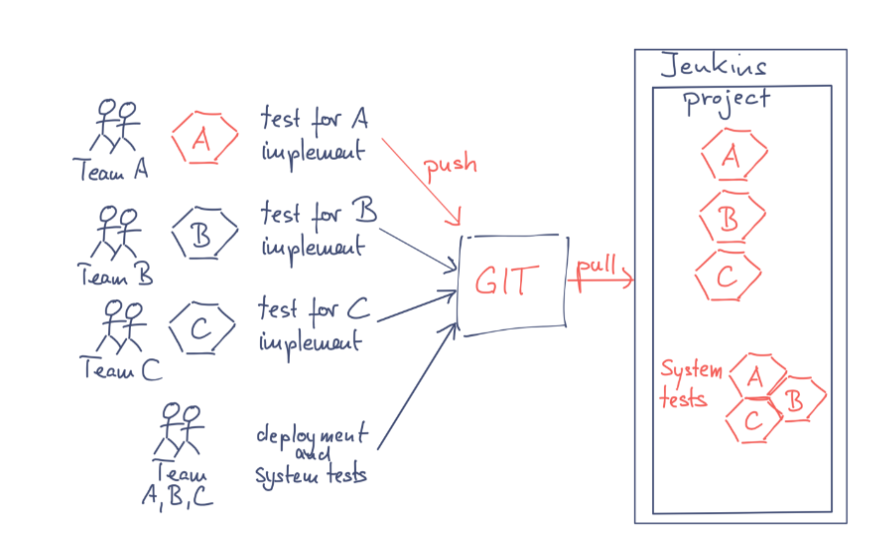 Team A
A
test for A
implement
push
Team B
B
test for B
implement
Team C
C
test for C
implement
Team
A, B, C
deployment
and
System tests
GIT
pull
Jenkins
project
A
B
C
System
tests
A
B
C